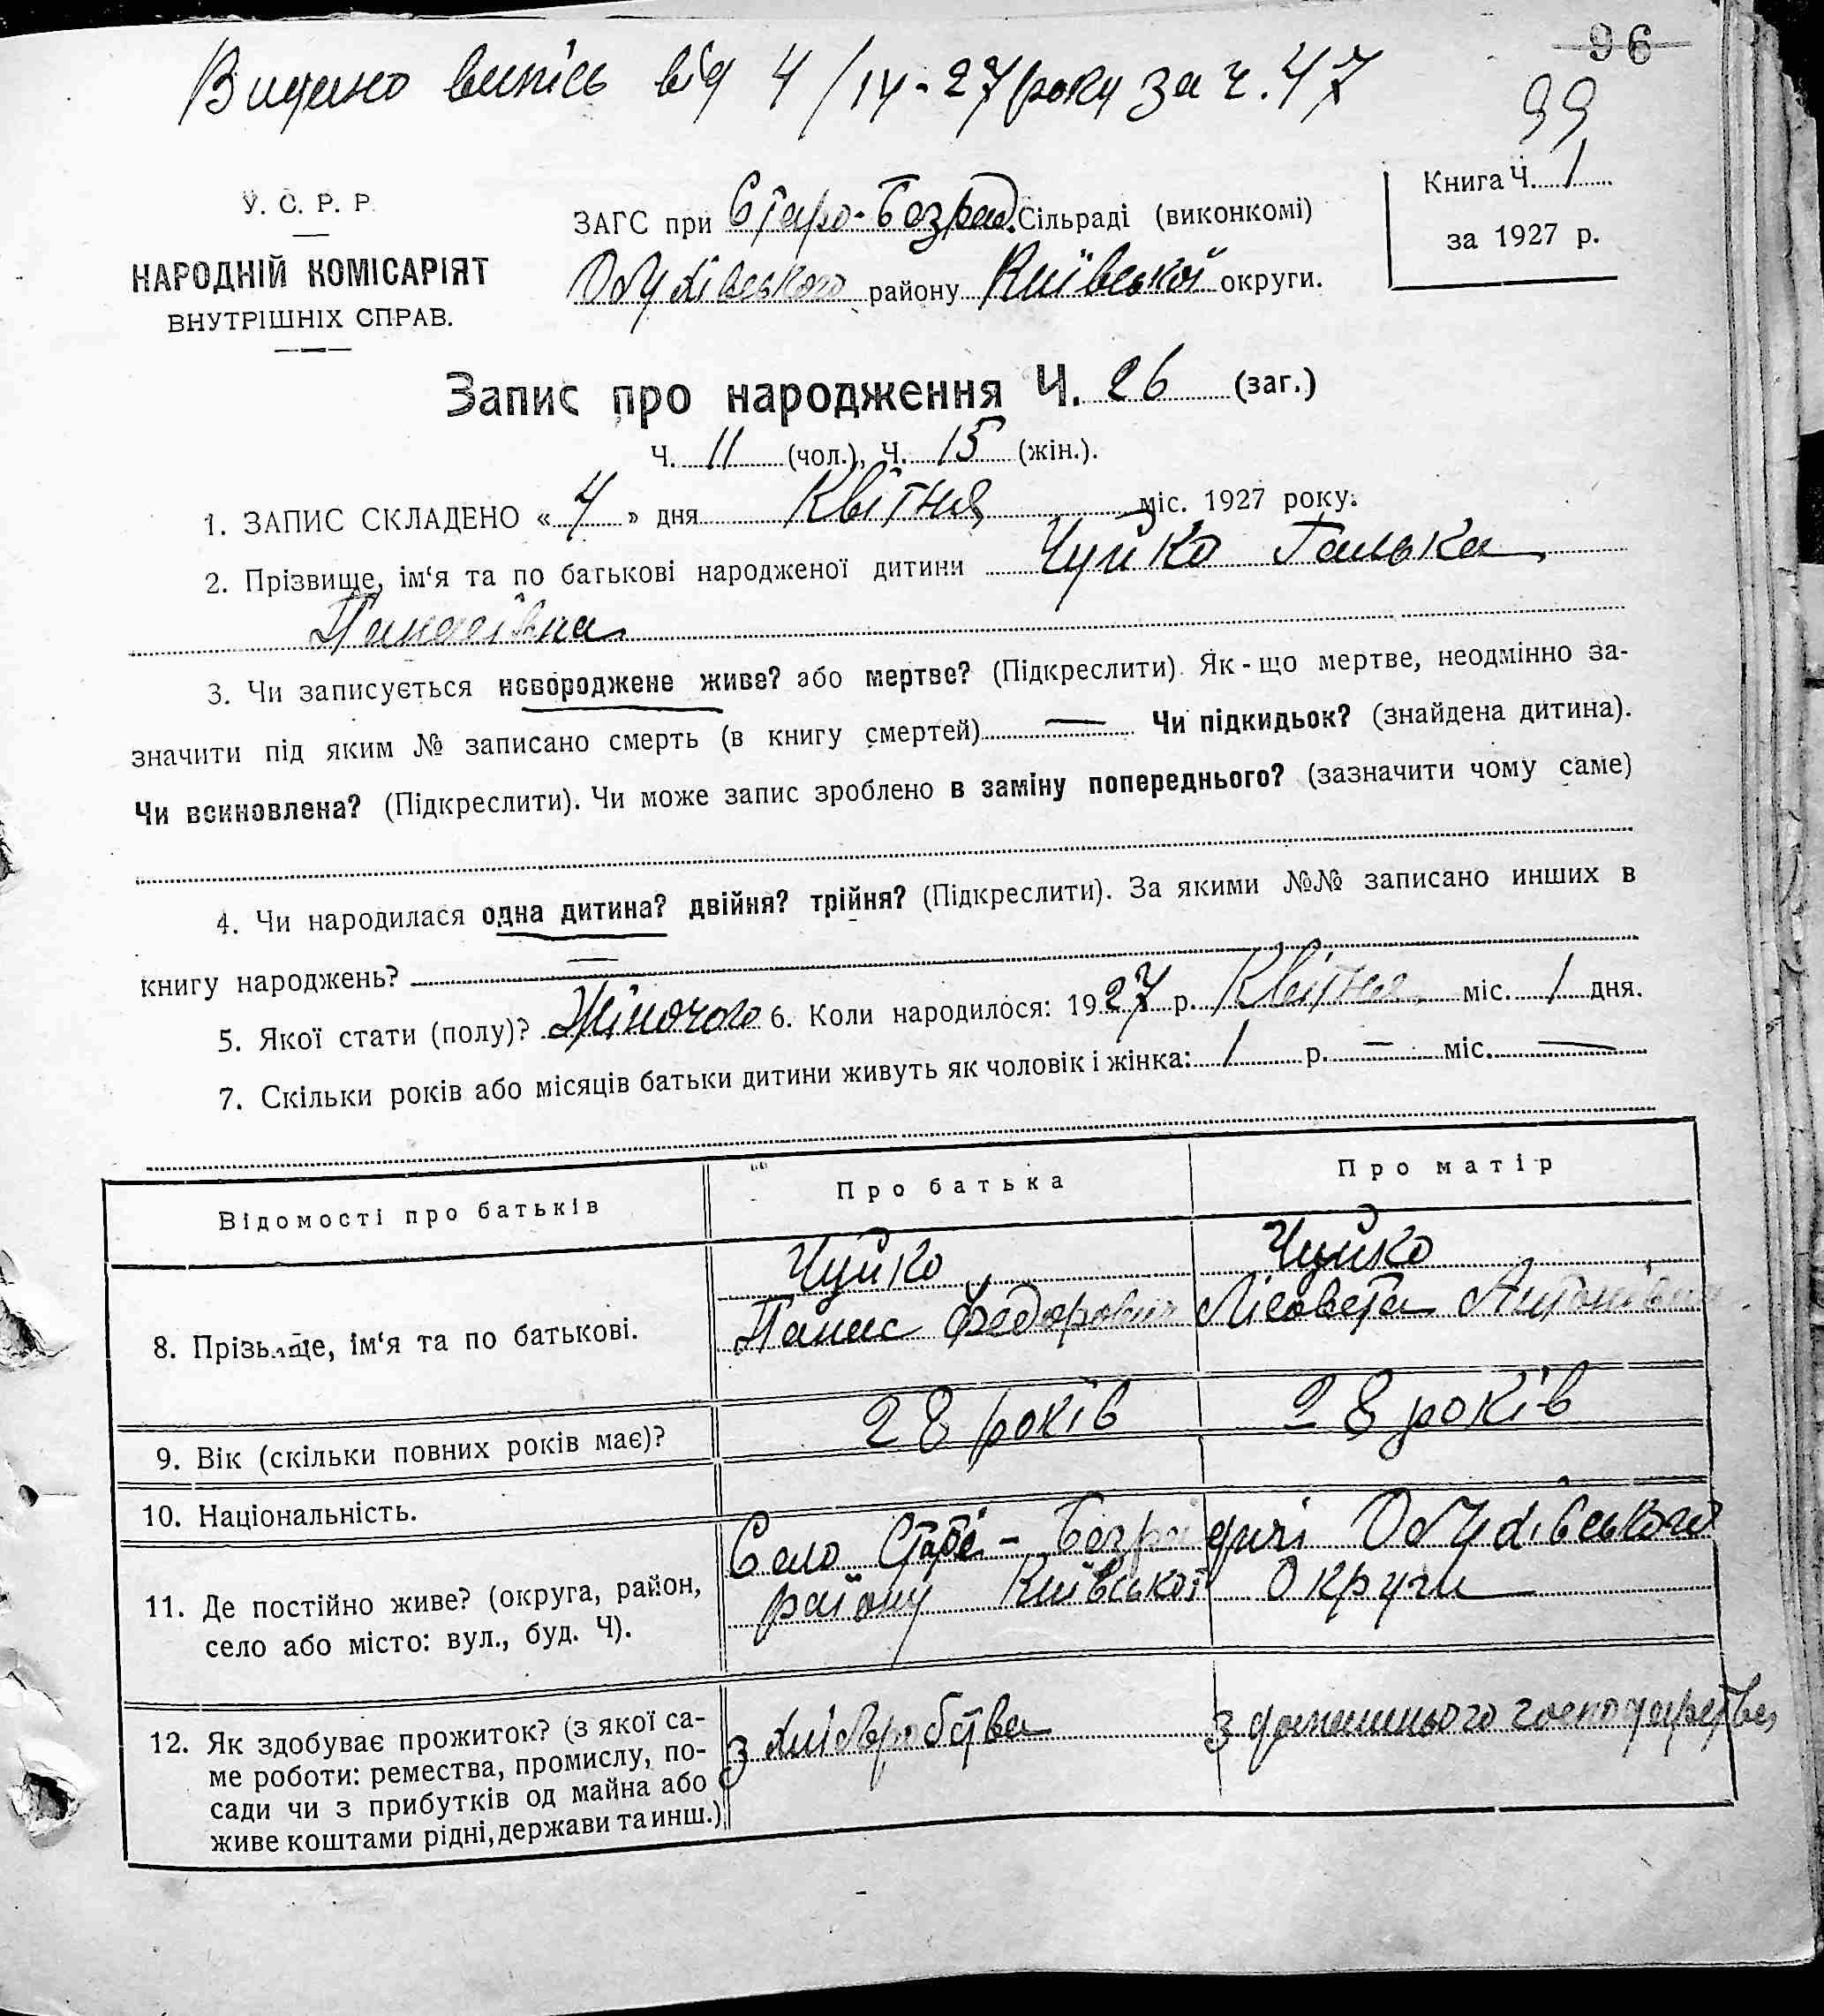 96
Видано випісь від 4/IV-27 року за ч. 47
99
У. С. Р. Р.
НАРОДНІЙ КОМІСАРІЯТ
ВНУТРІШНІХ СПРАВ.
ЗАГС при Старо-Безрад. Сільраді (виконкомі)
Обухівського району Київської округи.
Книга Ч. 1
за 1927 р.
Запис про народження Ч. 26 (заг.)
Ч. 11 (чол.), Ч. 15 (жін.).
1. ЗАПИС СКЛАДЕНО «4» дня Квітня міс. 1927 року.
2. Прізвище, ім‘я та по батькові народженої дитини Чуйко Галька
Панасівна
3. Чи записується новороджене живе? або мертве? (Підкреслити). Як-що мертве, неодмінно за-
значити під яким № записано смерть (в книгу смертей) — Чи підкидьок? (знайдена дитина).
Чи всиновлена? (Підкреслити). Чи може запис зроблено в заміну попереднього? (зазначити чому саме)
4. Чи народилася одна дитина? двійня? трійня? (Підкреслити). За якими №№ записано инших в
книгу народжень? —
5. Якої стати (полу)? Жіночого 6. Коли народилося: 1927 р. Квітня міс. 1 дня.
7. Скільки років або місяців батьки дитини живуть як чоловік і жінка: 1 р. — міс. —
Відомості про батьків Про батька Про матір
8. Прізвище, ім‘я та по батькові.
Чуйко
Панас Федорович
Чуйко
Лісовета Антонівна
9. Вік (скільки повних років має)? 28 років 28 років
10. Національність.
11. Де постійно живе? (округа, район,
село або місто: вул., буд. Ч).
Село Старі-Безрадичі Обухівського
району Київської Округи
12. Як здобуває прожиток? (з якої са-
ме роботи: ремества, промислу, по-
сади чи з прибутків од майна або
живе коштами рідні, держави та инш.)
з хліборобства
з домашнього господарства